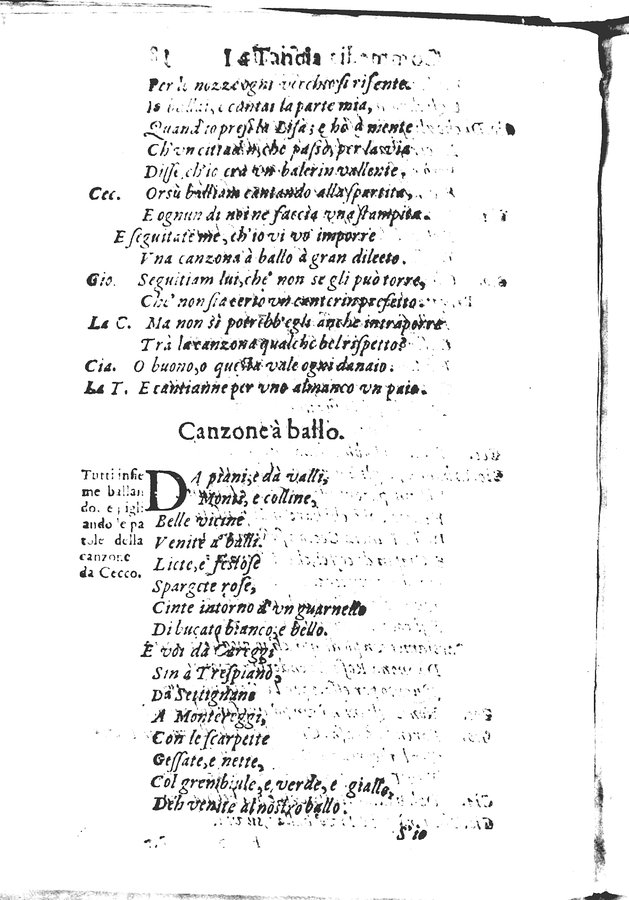 La Tancia
Per le nozze ogni vecchio si risente.
Io ballai, e cantai la parte mia,
Quand'io presi la Lisa; e hò à mente
Ch'vn cittadin, che passò, per la via
Disse, ch'io era vn balerin vallente,
Cec. Orsù balliam cantando alla spartita,
E ognun di noi ne faccia vna stampita.
E seguitate me, ch'io vi vò imporre
Vna canzona à ballo à gran diletto.
Gio. Seguitiam lui, che' non se gli può torre,
Che' non sia certo vn canterin prefetto.
La C. Ma non si potrebb'egli anche intraporre
Trà la canzona qualche bel rispetto?
Cia. O buono, o questa vale ogni danaio.
La T. E cantianne per vno almanco vn paio.
Canzone à ballo.
Tutti insie
me ballan
do, e pigli
ando le pa
role della
canzone
da Cecco.
DA piani, e dà valli,
Monti, e colline,
Belle vicine
Venite a' balli.
Liete, e festose
Spargete rose,
Cinte intorno d'vn guarnello
Di bucato bianco, e bello.
E voi dà Careggi
Sin à Trespiano,
Da Settignano
A Montereggi,
Con le scarpette
Gessate, e nette,
Col grembiule, e verde, e giallo,
Deh venite al nostro ballo.
S'io